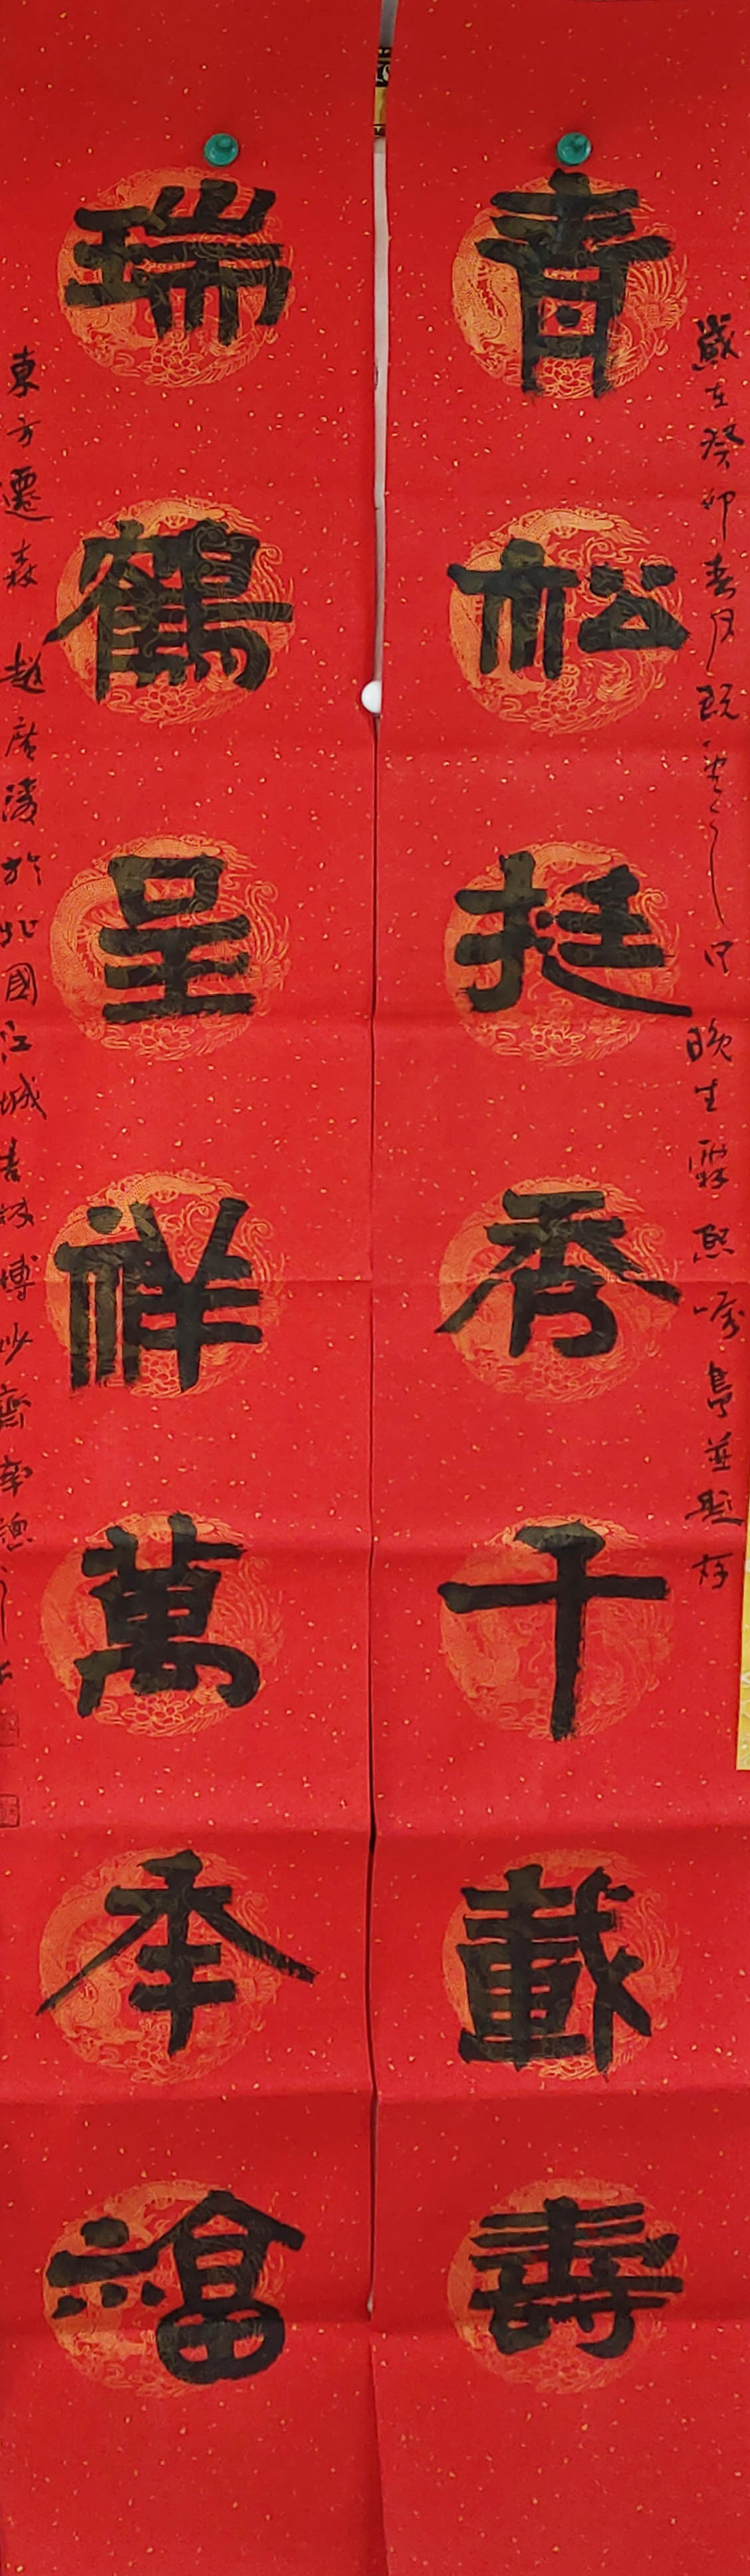 歲在癸卯春月既望之日 晚生霖熙嘱 並題存
青松挺秀千載壽
瑞鶴呈祥萬年福
東方遷森 趙廣陵於北國江城吉林博妙齋